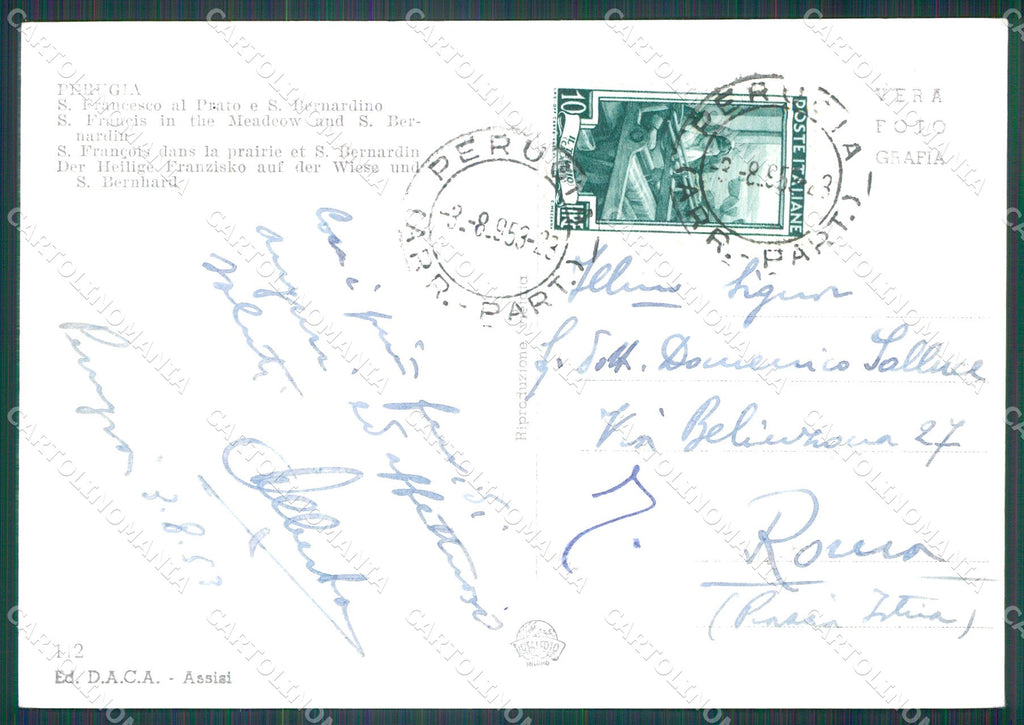 PERUGIA
S. Francesco al Prato e S. Bernardino
S. Francis in the Meadeow and S. Ber-
nardin
S. François dans la prairie et S. Bernardin
Der Heilige Franzisko auf der Wiese und
S. Bernhard
VERA
FOTO
GRAFIA
10
POSTE ITALIANE
LIRE
PERUGIA
-3.-8.953-23
(ARR.-PART.)
PERUGIA
-3.-8.953-23
(ARR.-PART.)
Con i più
ed affettuosi
auguri
saluti
Alberto
Perugia 3.8.53
Riproduzione
Ill.mo Signor
Dott. Domenico
Via Bellinzona 27
Roma
(Piazza Istria)
112
Ed. D.A.C.A. - Assisi
MILANO
CARTOLINOMANIA